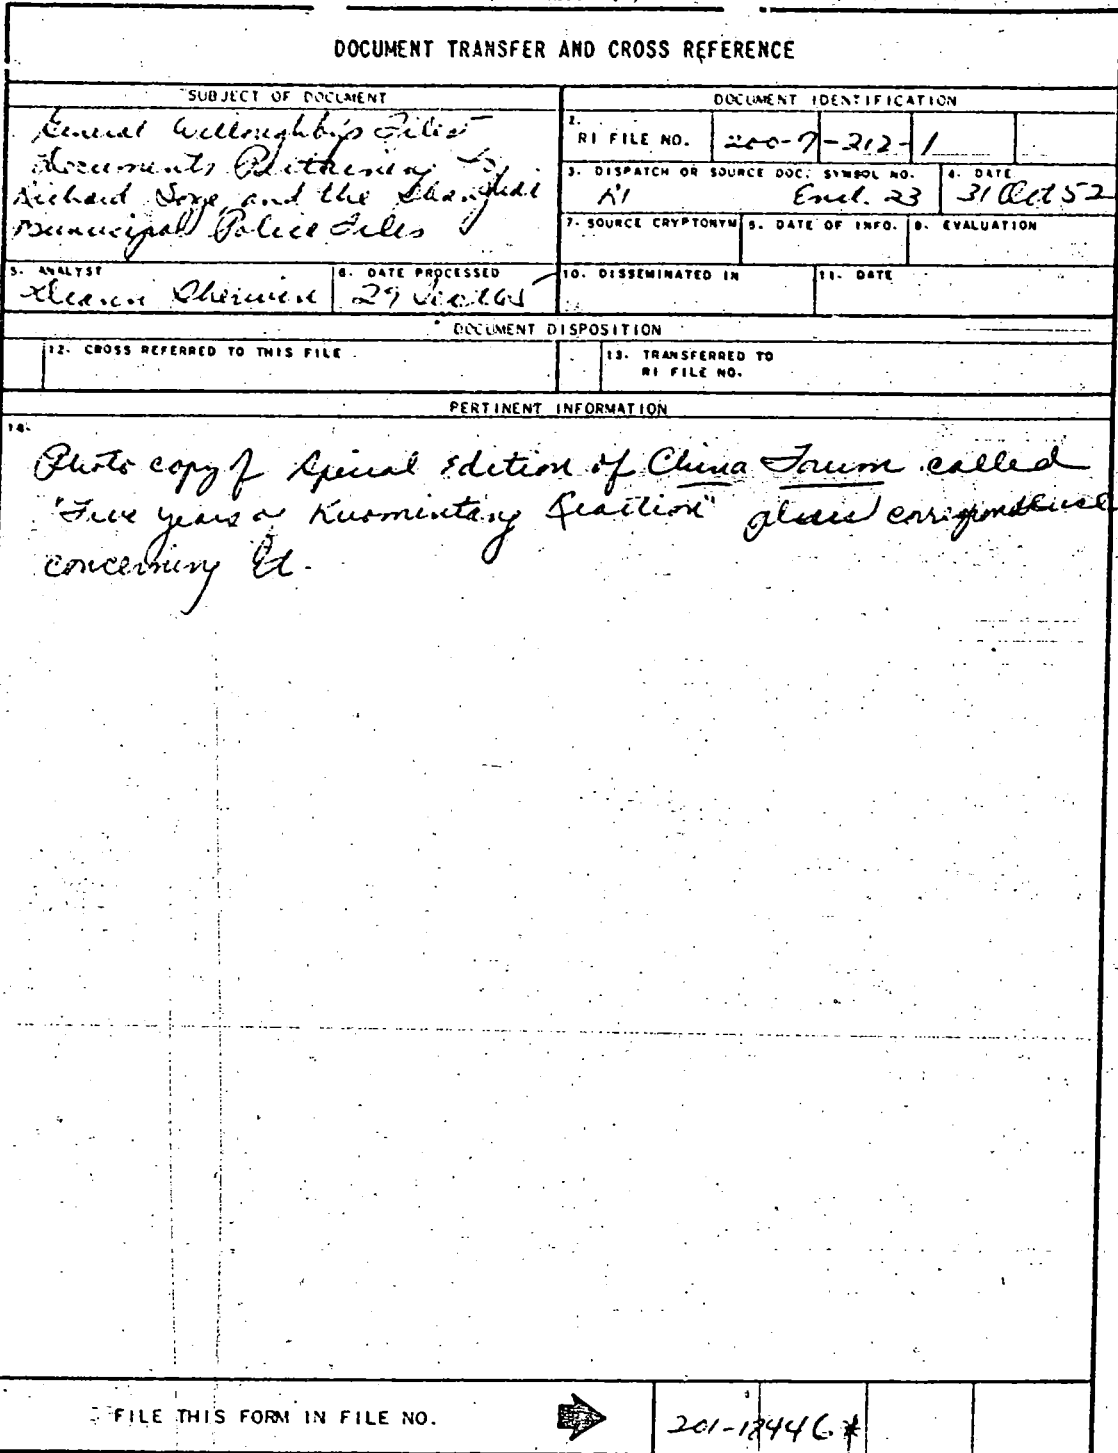 DOCUMENT TRANSFER AND CROSS REFERENCE
SUBJECT OF DOCUMENT
General Willoughby's Files
Documents Pertaining To
Richard Sorge and the Shanghai
Municipal Police Files
DOCUMENT IDENTIFICATION
2.
RI FILE NO.
200-7-212-1
3. DISPATCH OR SOURCE DOC. SYMBOL NO.
RI Encl. 23
4. DATE
31 Oct 52
7. SOURCE CRYPTONYM
8. DATE OF INFO.
9. EVALUATION
5. ANALYST
Sherwin
6. DATE PROCESSED
29
10. DISSEMINATED IN
11. DATE
DOCUMENT DISPOSITION
12. CROSS REFERRED TO THIS FILE
13. TRANSFERRED TO
RI FILE NO.
PERTINENT INFORMATION
14.
Photo copy of Special Edition of China Forum called
"Five years of Kuomintang Reaction" plus correspondence
concerning it.
FILE THIS FORM IN FILE NO.
201-18446*